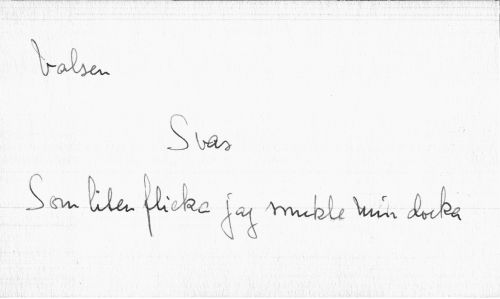 Valsen
Svas
Som liten flicka jag smekte min docka